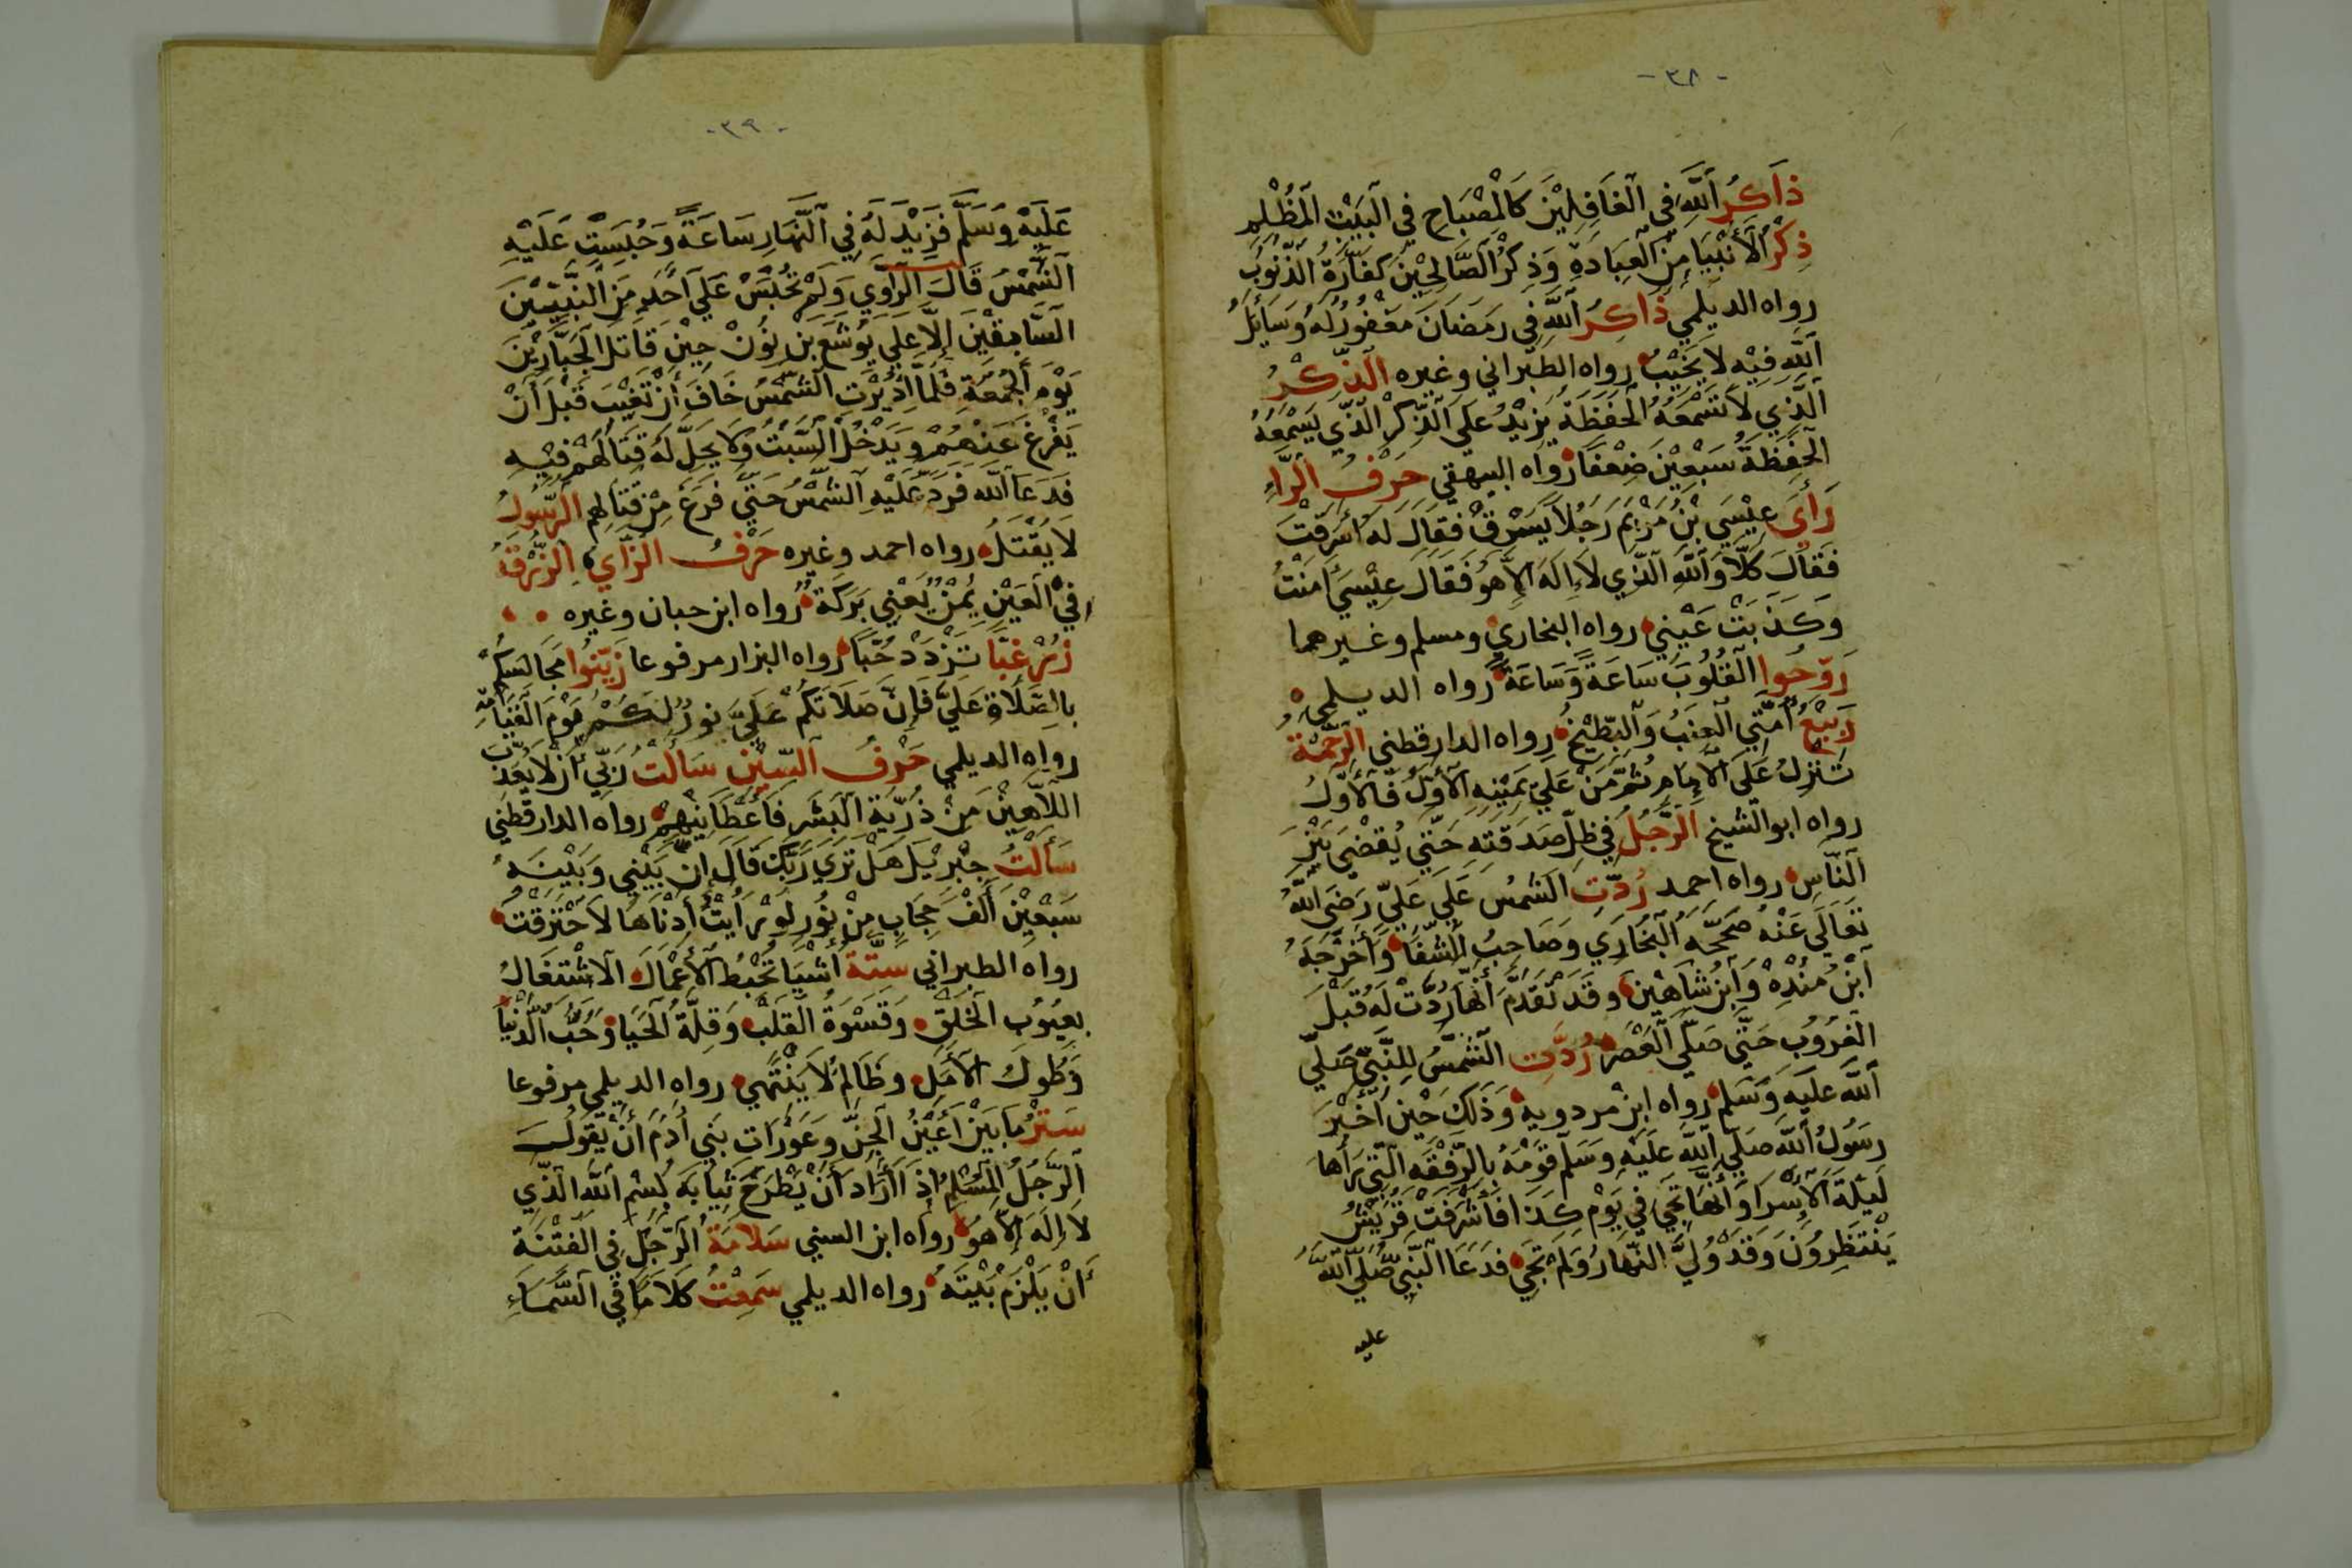 -٣٨-
ذَاكِرُ اللَّهِ فِي الْغَافِلِيْنَ كَالْمِصْبَاحِ فِي الْبَيْتِ الْمُظْلِمِ
ذِكْرُ الْأَنْبِيَا مِنَ الْعِبَادَةِ وَذِكْرُ الصَّالِحِيْنَ كَفَّارَةُ الذُّنُوْبِ
رواه الديلمي ذَاكِرُ اللَّهِ فِي رَمَضَانَ مَغْفُوْرٌ لَهُ وَسَائِلُ
اللَّهِ فِيْهِ لَا يَخِيْبُ رواه الطبراني وغيره الذِّكْرُ
الَّذِي لَا تَسْمَعُهُ الْحَفَظَةُ يَزِيْدُ عَلَى الذِّكْرِ الَّذِي يَسْمَعُهُ
الْحَفَظَةُ سَبْعِيْنَ ضِعْفًا رواه البيهقي حَرْفُ الرَّاءِ
رَأَى عِيْسَى بْنُ مَرْيَمَ رَجُلًا يَسْرِقُ فَقَالَ لَهُ أَسَرَقْتَ
فَقَالَ كَلَّا وَاللَّهِ الَّذِي لَا إِلَهَ إِلَّا هُوَ فَقَالَ عِيْسَى أَمَنْتُ
وَكَذَبَتْ عَيْنِي رواه البخاري ومسلم وغيرهما
رَوِّحُوا الْقُلُوْبَ سَاعَةً وَسَاعَةً رواه الديلمي
رَبِيْعُ أُمَّتِي الْعِنَبُ وَالْبِطِّيْخُ رواه الدارقطني الرَّحْمَةُ
تَنْزِلُ عَلَى الْإِمَامِ ثُمَّ مَنْ عَلَى يَمِيْنِهِ الْأَوَّلُ فَالْأَوَّلُ
رواه ابوالشيخ الرَّجُلُ فِي ظِلِّ صَدَقَتِهِ حَتَّى يُقْضَى بَيْنَ
النَّاسِ رواه احمد رُدَّتِ الشَّمْسُ عَلَى عَلِيٍّ رَضِيَ اللَّهُ
تَعَالَى عَنْهُ صَحَّحَهُ الْبُخَارِي وَصَاحِبُ الشِّفَا وَأَخْرَجَهُ
ابْنُ مُنْدِهْ وَابْنُ شَاهِيْنَ وَقَدْ تَقَدَّمَ أَنَّهَا رُدَّتْ لَهُ قَبْلَ
الْغُرُوْبِ حَتَّى صَلَّى الْعَصْرَ رُدَّتِ الشَّمْسُ لِلنَّبِيِّ صَلَّى
اللَّهُ عَلَيْهِ وَسَلَّمَ رواه ابن مردويه وَذَلِكَ حِيْنَ أَخْبَرَ
رَسُوْلُ اللَّهِ صَلَّى اللَّهُ عَلَيْهِ وَسَلَّمَ قَوْمَهُ بِالرُّفْقَةِ الَّتِي رَأَهَا
لَيْلَةَ الْإِسْرَا وَأَنَّهَا تَجِي فِي يَوْمِ كَذَا فَأَشْرَفَتْ قُرَيْشٌ
يَنْتَظِرُوْنَ وَقَدْ وُلِّيَ النَّهَارُ وَلَمْ تَجِي فَدَعَا النَّبِيُّ صَلَّى اللَّهُ
عليه
-٣٩-
عَلَيْهِ وَسَلَّمَ فَزِيْدَ لَهُ فِي النَّهَارِ سَاعَةً وَحُبِسَتْ عَلَيْهِ
الشَّمْسُ قَالَ الرَّاوِي وَلَمْ تُحْبَسْ عَلَى أَحَدٍ مِنَ النَّبِيِّيْنَ
السَّابِقِيْنَ إِلَّا عَلَى يُوْشَعَ بْنِ نُوْنْ حِيْنَ قَاتَلَ الْجَبَّارِيْنَ
يَوْمَ الْجُمُعَةِ فَلَمَّا أُدِيْرَتِ الشَّمْسُ خَافَ أَنْ تَغِيْبَ قَبْلَ أَنْ
يَفْرُغَ عَنْهُمْ وَيَدْخُلَ السَّبْتُ وَلَا يَحِلُّ لَهُ قِتَالُهُمْ فِيْهِ
فَدَعَا اللَّهَ فَرَدَّ عَلَيْهِ الشَّمْسَ حَتَّى فَرَغَ مِنْ قِتَالِهِمْ الرَّسُوْلُ
لَا يُقْتَلُ رواه احمد وغيره حَرْفُ الزَّاي الزُّرْقَةُ
فِي الْعَيْنِ يُمْنٌ يَعْنِي بَرَكَةٌ رواه ابن حبان وغيره
زُرْ غِبًّا تَزْدَدْ حُبًّا رواه البزار مرفوعا زَيِّنُوا مَجَالِسَكُمْ
بِالصَّلَاةِ عَلَيَّ فَإِنَّ صَلَاتَكُمْ عَلَيَّ نُورٌ لَكُمْ يَوْمَ الْقِيَامَةِ
رواه الديلمي حَرْفُ السِّيْنِ سَأَلْتُ رَبِّي أَنْ لَا يُعَذِّبَ
اللَّاهِيْنَ مِنْ ذُرِّيَّةِ الْبَشَرِ فَأَعْطَانِيْهِمْ رواه الدارقطني
سَأَلْتُ جِبْرِيْلَ هَلْ تَرَى رَبَّكَ قَالَ إِنَّ بَيْنِي وَبَيْنَهُ
سَبْعِيْنَ أَلْفَ حِجَابٍ مِنْ نُوْرٍ لَوْ رَأَيْتُ أَدْنَاهَا لَاحْتَرَقْتُ
رواه الطبراني سِتَّةُ أَشْيَا تُحْبِطُ الْأَعْمَالَ الْاشْتِغَالُ
بِعُيُوْبِ الْخَلْقِ وَقَسْوَةُ الْقَلْبِ وَقِلَّةُ الْحَيَا وَحُبُّ الدُّنْيَا
وَطُوْلُ الْأَمَلِ وَظَالِمٌ لَا يَنْتَهِي رواه الديلمي مرفوعا
سَتْرُ مَا بَيْنَ أَعْيُنِ الْجِنِّ وَعَوْرَاتِ بَنِي أَدَمَ أَنْ يَقُوْلَ
الرَّجُلُ الْمُسْلِمُ إِذَا أَرَادَ أَنْ يَطْرَحَ ثِيَابَهُ بِسْمِ اللَّهِ الَّذِي
لَا إِلَهَ إِلَّا هُوَ رواه ابن السني سَلَامَةُ الرَّجُلِ فِي الْفِتْنَةِ
أَنْ يَلْزَمَ بَيْتَهُ رواه الديلمي سَمِعْتُ كَلَامًا فِي السَّمَاءِ